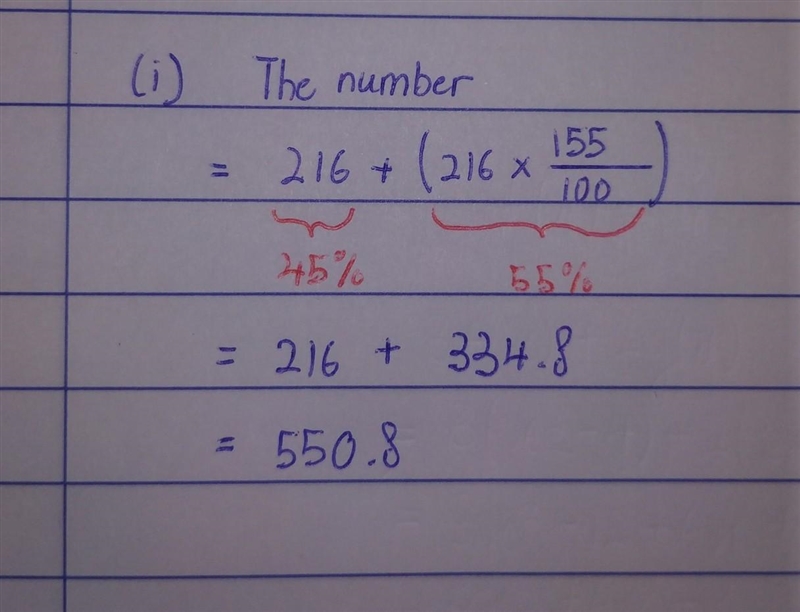 (i) The number
= 216 + (216 × 155/100)
45% 55%
= 216 + 334.8
= 550.8